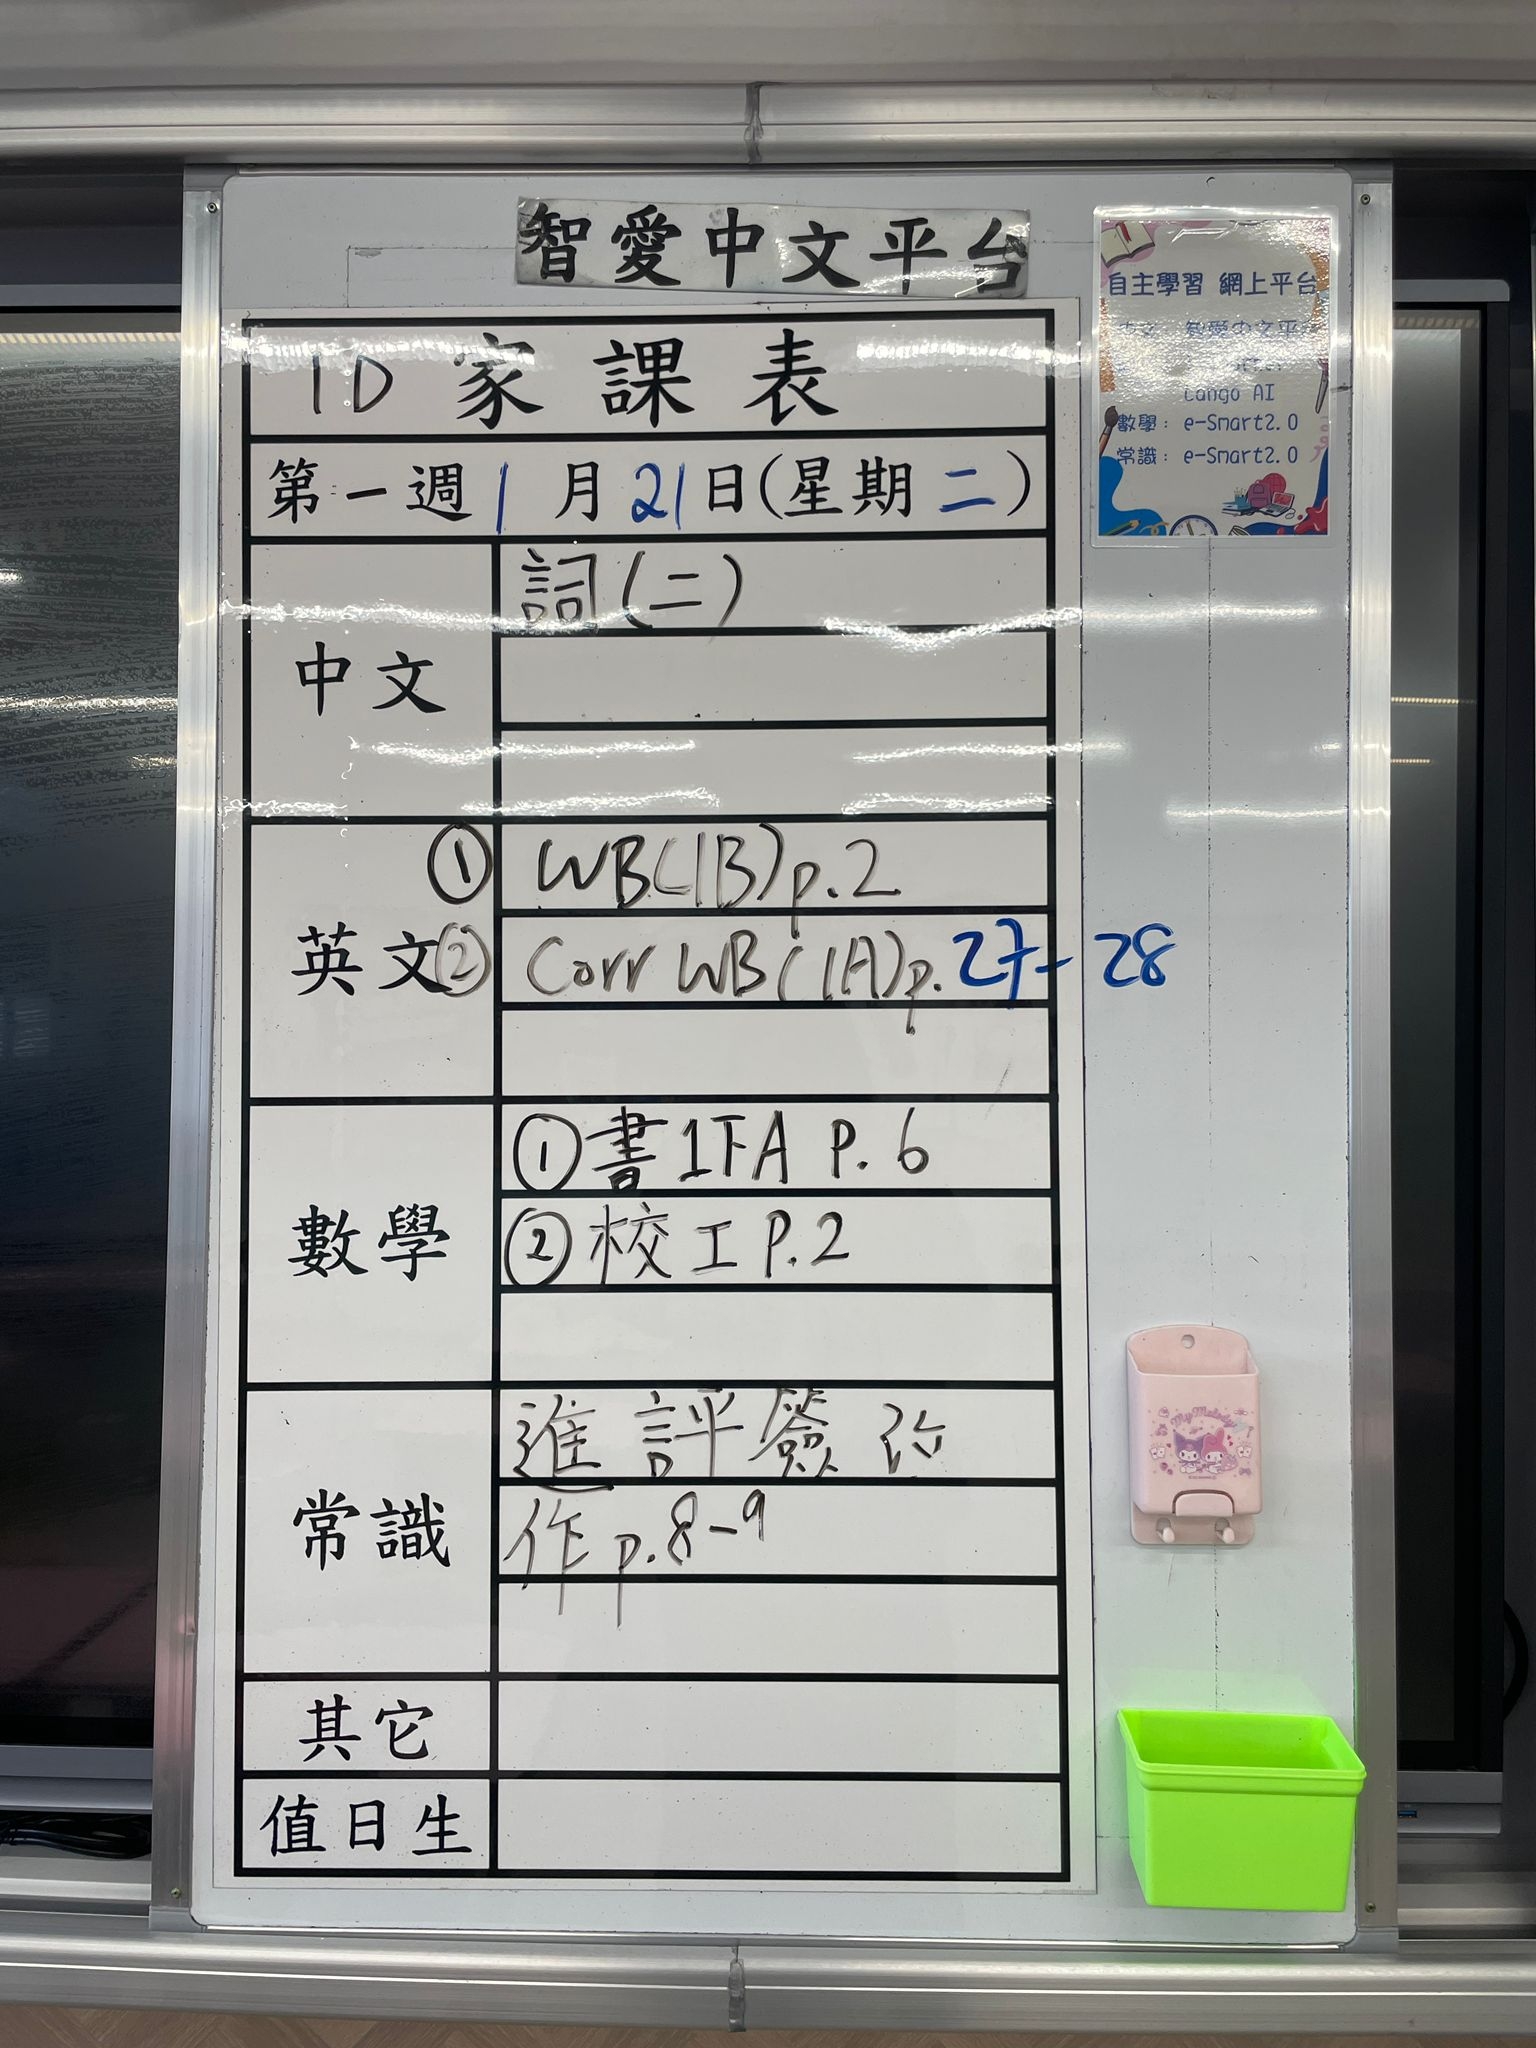 智愛中文平台
自主學習 網上平台
中文: 智愛中文平
Lango AI
數學: e-Smart2.0
常識: e-Smart2.0
1D 家課表
第一週 1月21日(星期二)
中文
詞(二)
英文
① WB(1B)p.2
② Corr WB(1A)p.27-28
數學
① 書1FA P.6
② 校工 P.2
常識
進評簽改
作p.8-9
其它
值日生
My Melody